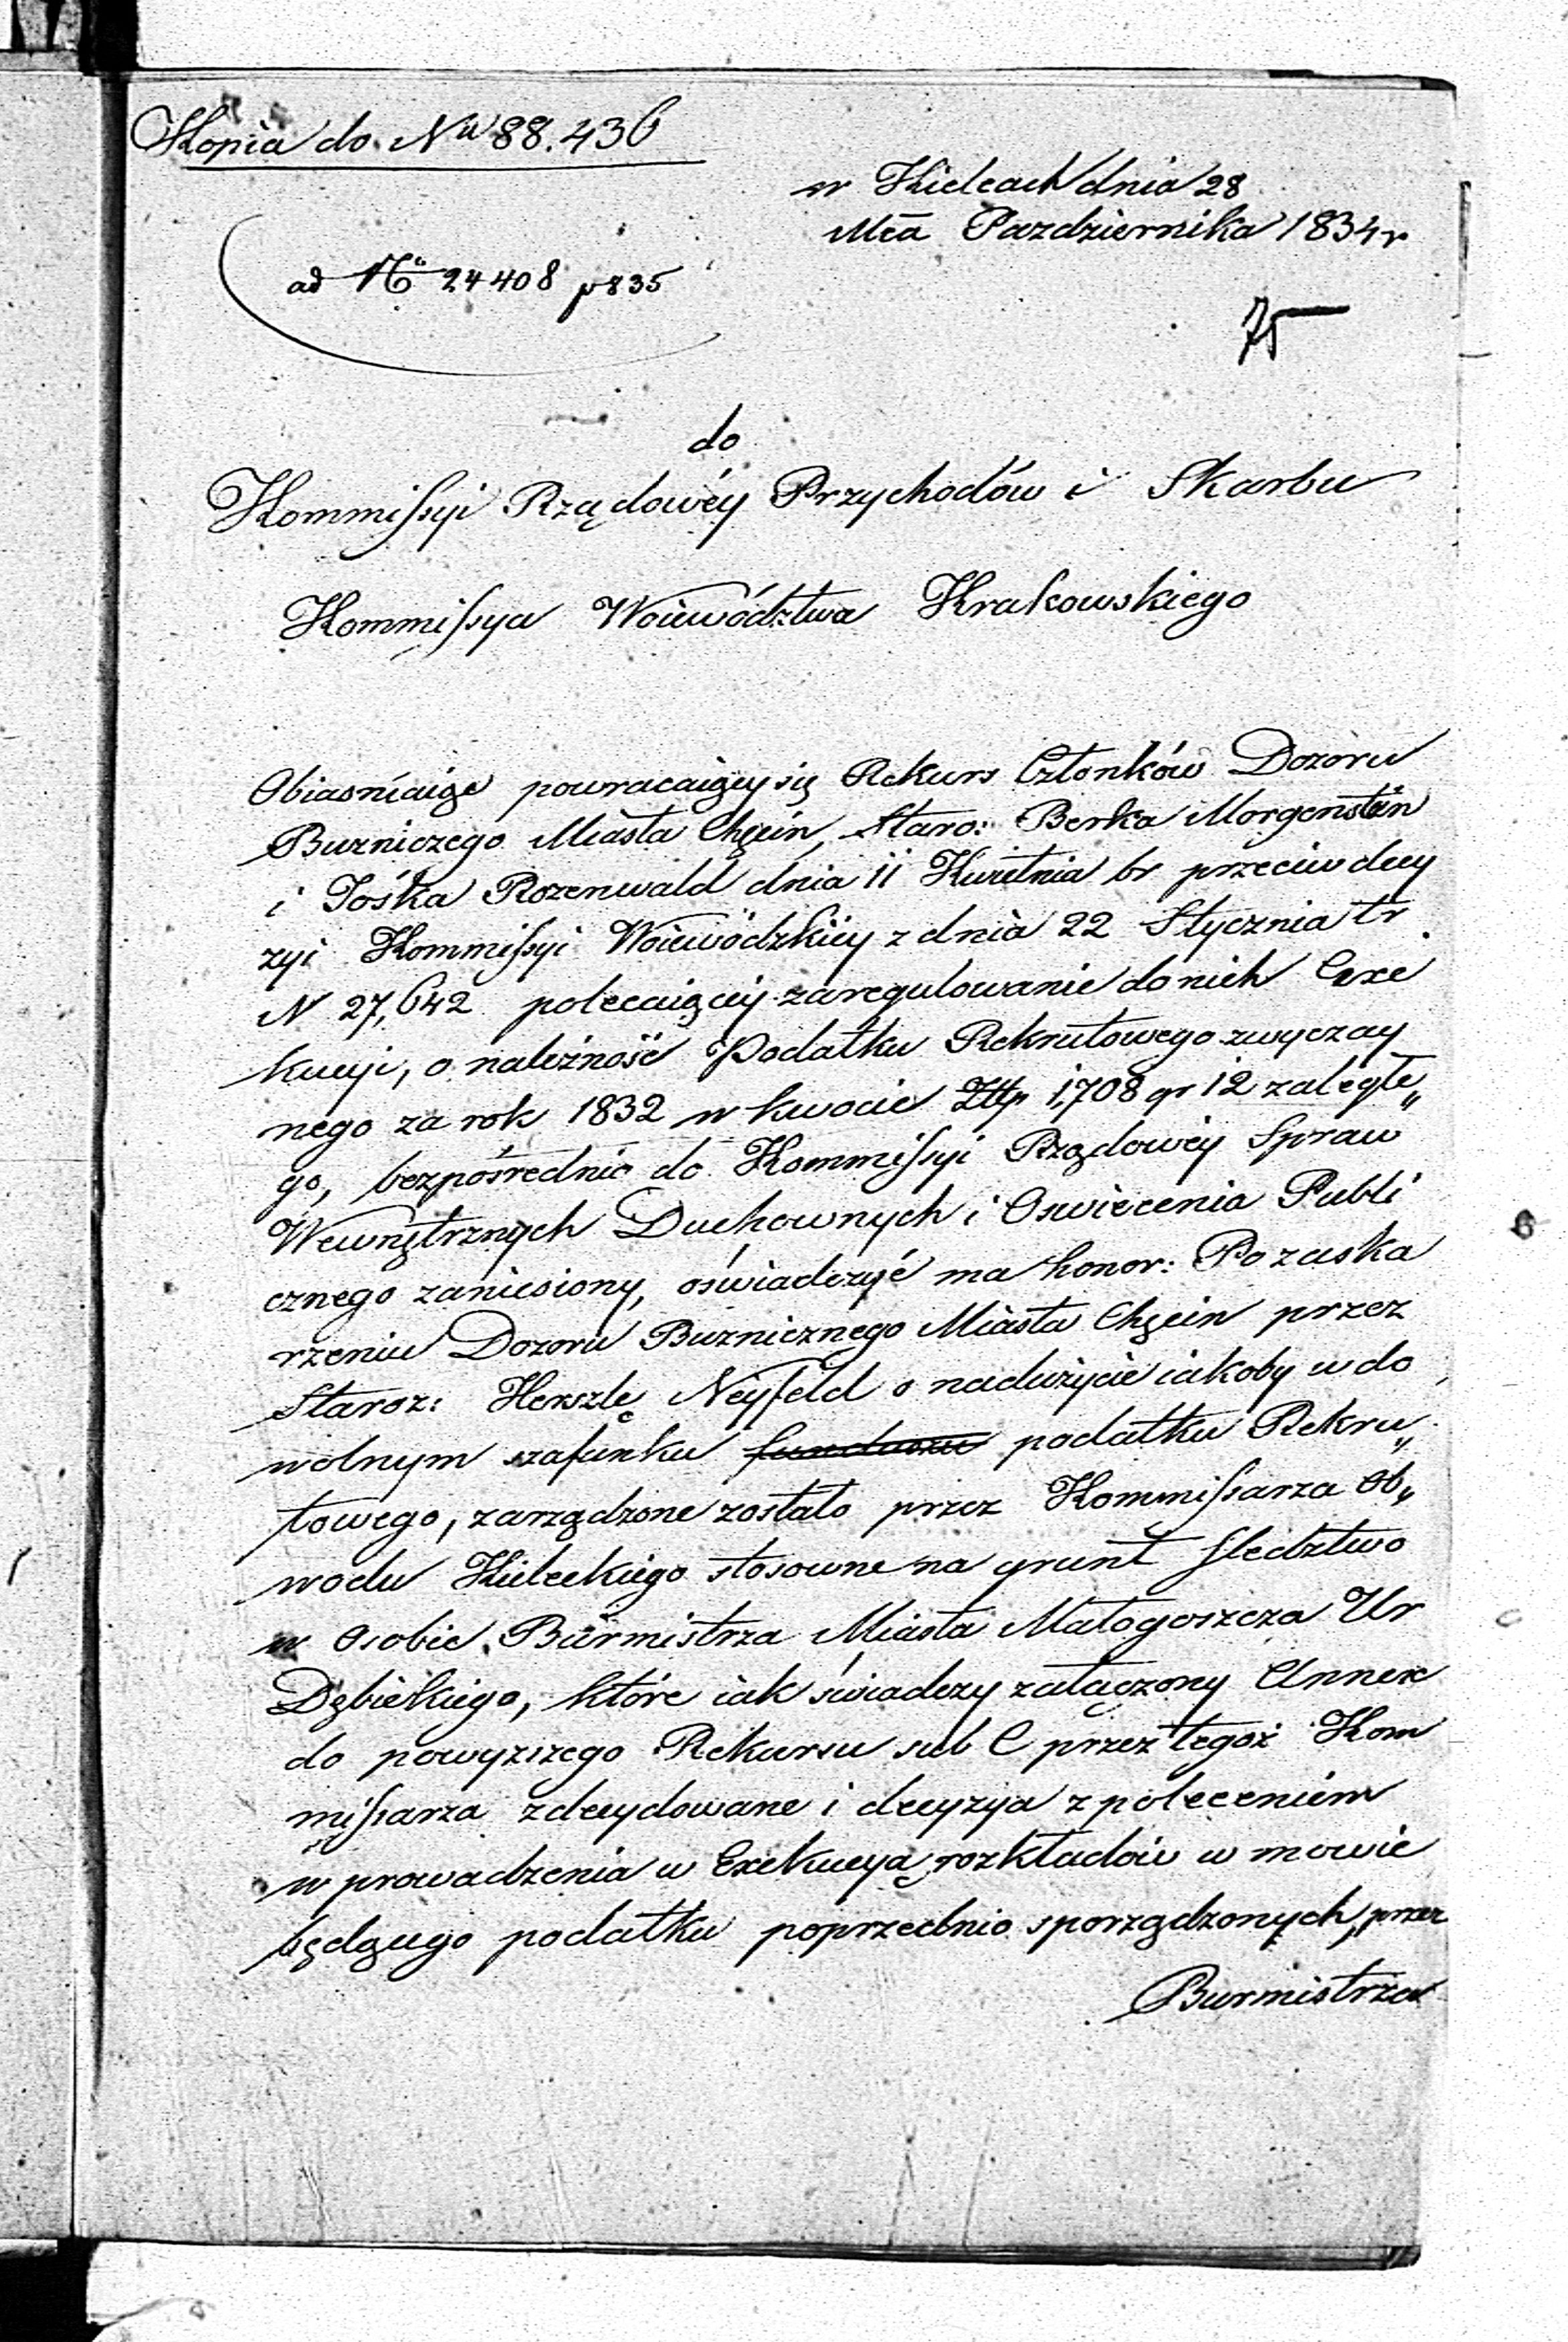 Kopia do Nu 88.436
w Kielcach dnia 28
Mca Pazdziernika 1834 r
ad No 24408 p835
75
do
Kommissyi Rządowéy Przychodów i Skarbu
Kommissya Woiewództwa Krakowskiego
Obiasniaiąc powracaiący się Rekurs Członków Dozoru
Buzniczego Miasta Chęcin, Staro: Berka Morgenstern
i Jośka Rozenwald dnia 11 Kwietnia br przeciw decy
zyi Kommissyi Woiewódzkiey z dnia 22 Stycznia tr
N 27,642 polecaiącey zaregulowanie do nich Exe
kucyi, o należność Podatku Rekrutowego zwyczay
nego za rok 1832 w kwocie Złtp 1,708 gr 12 zaległe„
go, bezpośrednio do Kommissyi Rządowéy Spraw
Wewnętrznych Duchownych i Oswiecenia Publi
cznego zaniesiony, oświadczyć ma honor: Po zaska
rzeniu Dozoru Buznicznego Miasta Chęcin przez
Staroz: Herszlę Neyfeld o nadużycie iakoby w do
wolnym szafunku funduszu podatku Rekru„
towego, zarządzone zostało przez Kommissarza Ob„
wodu Kieleckiego stosowne na grunt sledztwo
w Osobie Burmistrza Miasta Małogoszcza Ur
Dębickiego, które iak świadczy załączony Annex
do powyzszego Rekursu sub C przez tegoż Kom
missarza zdecydowane i decyzya z poleceniem
w prowadzenia w Exekucyą rozkładów w mowie
będącego podatku poprzednio sporządzonych, przez
Burmistrza